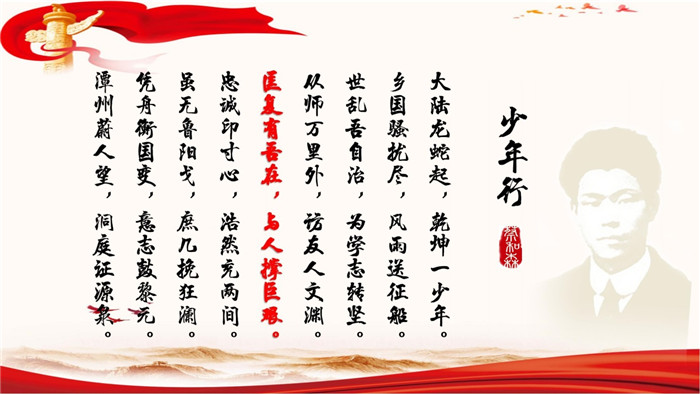 少年行
蔡和森
大陆龙蛇起，乾坤一少年。
乡国骚扰尽，风雨送征船。
世乱吾自治，为学志转坚。
从师万里外，访友人文渊。
匡复有吾在，与人撑巨艰。
忠诚印寸心，浩然充两间。
虽无鲁阳戈，庶几挽狂澜。
凭舟衡国变，意志鼓黎元。
潭州蔚人望，洞庭证源泉。